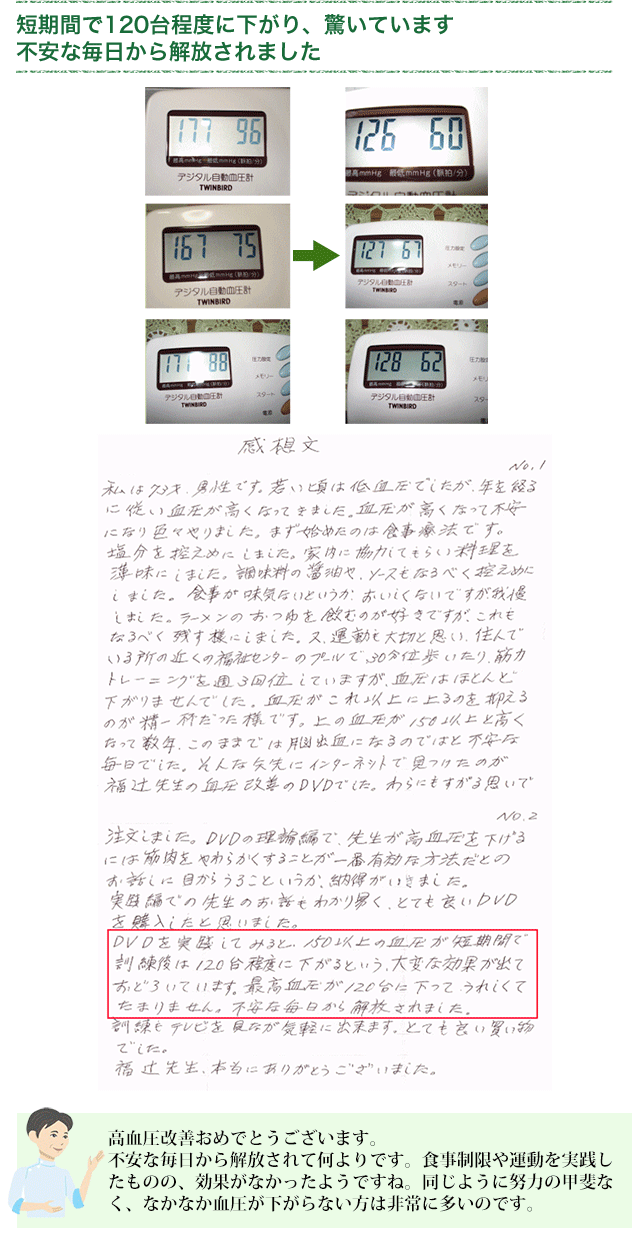 短期間で120台程度に下がり、驚いています
不安な毎日から解放されました
177 96
最高mmHg 最低mmHg(脈拍/分)
デジタル自動血圧計
TWINBIRD
126 60
最高mmHg 最低mmHg(脈拍/分)
デジタル自動血圧計
167 75
最高mmHg 最低mmHg(脈拍/分)
デジタル自動血圧計
TWINBIRD
127 67
最高mmHg 最低mmHg(脈拍/分)
デジタル自動血圧計
TWINBIRD
圧力設定
メモリー
スタート
電源
171 88
最高mmHg 最低mmHg(脈拍/分)
デジタル自動血圧計
TWINBIRD
圧力設定
メモリー
スタート
電源
128 62
最高mmHg 最低mmHg(脈拍/分)
デジタル自動血圧計
TWINBIRD
圧力設定
メモリ
スタ
電源
感想文
No.1
私は73才、男性です。若い頃は低血圧でしたが、年を経る
に従い血圧が高くなってきました。血圧が高くなって不安
になり色々やりました。まず始めたのは食事療法です。
塩分を控えめにしました。家内に協力してもらい料理を
薄味にしました。調味料の醤油や、ソースもなるべく控えめに
しました。食事が味気ないというか、おいしくないですが我慢
しました。ラーメンのおつゆを飲むのが好きですが、これも
なるべく残す様にしました。又、運動も大切と思い、住んで
いる所の近くの福祉センターのプールで、30分位歩いたり、筋力
トレーニングを週3回位していますが、血圧はほとんど
下がりませんでした。血圧がこれ以上に上るのを抑える
のが精一杯だった様です。上の血圧が150以上と高く
なって数年、このままでは脳出血になるのではと不安な
毎日でした。そんな矢先にインターネットで見つけたのが
福辻先生の血圧改善のDVDでした。わらにもすがる思いで
No.2
注文しました。DVDの理論編で、先生が高血圧を下げる
には筋肉をやわらかくすることが一番有効な方法だとの
お話しに目からうろこというか、納得がいきました。
実践編での先生のお話もわかり易く、とても良いDVD
を購入したと思いました。
DVDを実践してみると、150以上の血圧が短期間で
訓練後は120台程度に下がるという、大変な効果が出て
おどろいています。最高血圧が120台に下って、うれしくて
たまりません。不安な毎日から解放されました。
訓練もテレビを見なが気軽に出来ます。とても良い買い物
でした。
福辻先生、本当にありがとうございました。
高血圧改善おめでとうございます。
不安な毎日から解放されて何よりです。食事制限や運動を実践し
たものの、効果がなかったようですね。同じように努力の甲斐な
く、なかなか血圧が下がらない方は非常に多いのです。